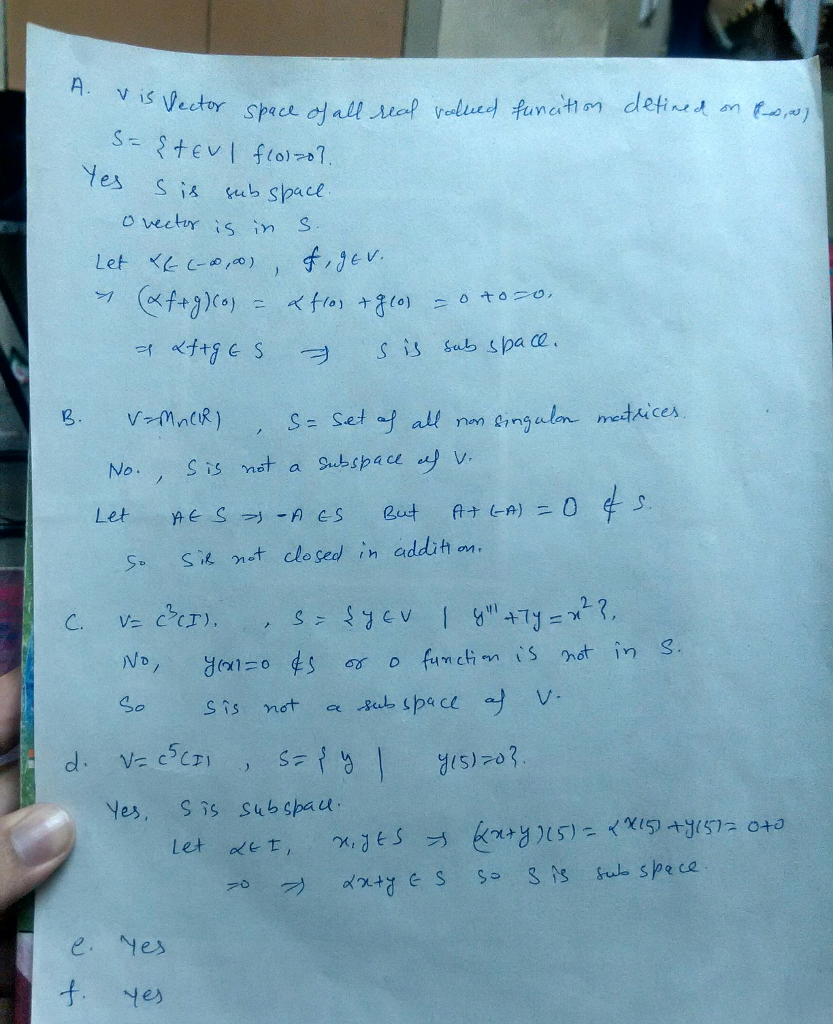 A. V is Vector space of all real valued funcition defined on (-∞,∞)
S = {f ∈ V | f(0)=0}.
Yes S is sub space.
0 vector is in S.
Let α ∈ (-∞,∞) , f, g ∈ V.
⇒ (αf+g)(0) = αf(0) + g(0) = 0+0=0.
⇒ αf+g ∈ S ⇒ S is sub space.
B. V=Mn(IR) , S = Set of all non singular matrices.
No. , S is not a Subspace of V.
Let A ∈ S ⇒ -A ∈ S But A+(-A) = 0 ∉ S.
So S is not closed in addition.
C. V = C³(I). , S = {y ∈ V | y''' +7y = x²}.
No, y(x)=0 ∉ S or 0 function is not in S.
So S is not a subspace of V.
d. V= C⁵(I) , S = {y | y(5)=0}.
Yes, S is subspace.
Let α ∈ I, x, y ∈ S ⇒ (αx+y)(5) = αx(5) + y(5) = 0+0
=0 ⇒ αx+y ∈ S so S is sub space.
e. Yes
f. yes